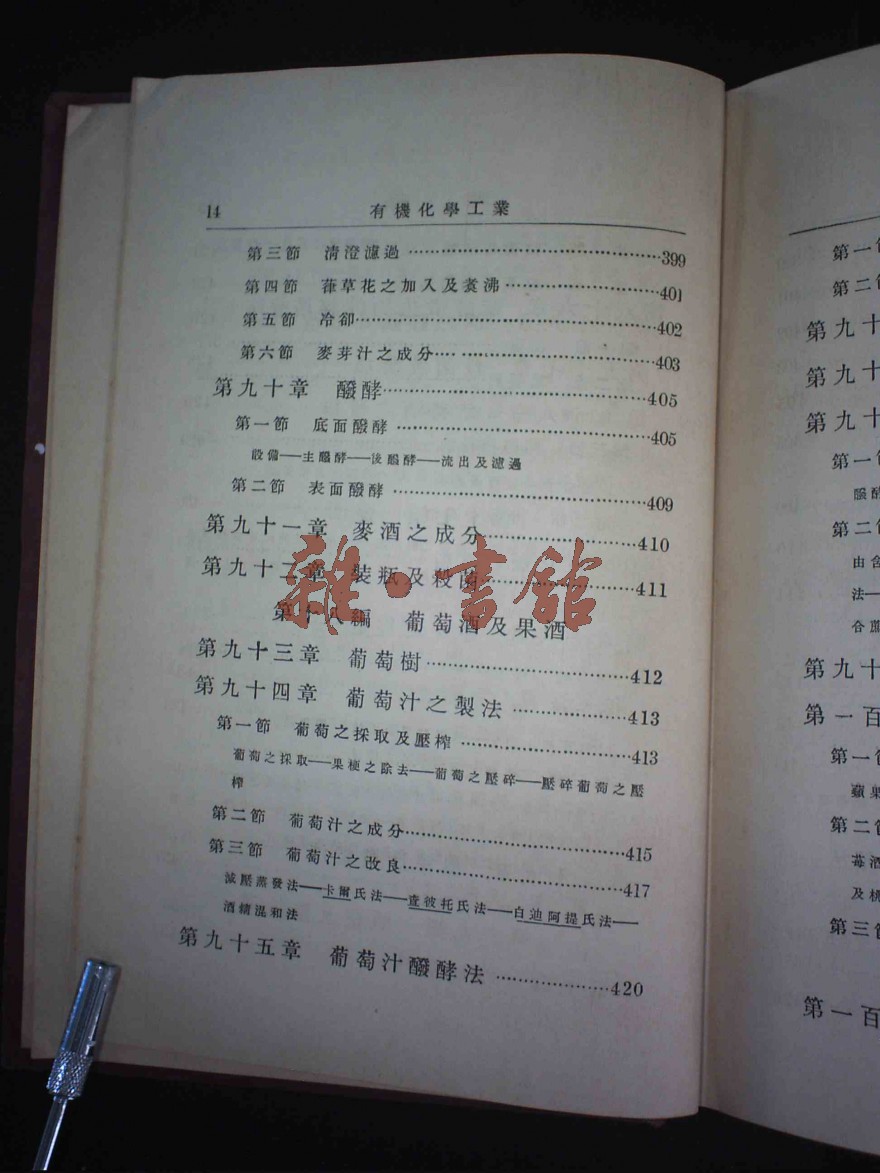 14 有機化學工業
第三節 清澄濾過 399
第四節 葎草花之加入及煑沸 401
第五節 冷卻 402
第六節 麥芽汁之成分 403
第九十章 醱酵 405
第一節 底面醱酵 405
設備——主醱酵——後醱酵——流出及濾過
第二節 表面醱酵 409
第九十一章 麥酒之成分 410
第九十二章 裝瓶及殺菌 411
第十八編 葡萄酒及果酒
第九十三章 葡萄樹 412
第九十四章 葡萄汁之製法 413
第一節 葡萄之採取及壓榨 413
葡萄之採取——果梗之除去——葡萄之壓碎——壓碎葡萄之壓
榨
第二節 葡萄汁之成分 415
第三節 葡萄汁之改良 417
減壓蒸發法——卡爾氏法——查彼托氏法——白迪阿提氏法——
酒精混和法
第九十五章 葡萄汁醱酵法 420
雜·書館
第一
第二
第九十
第九十
第九十
第一
醱
第二
由含
法—
合
第九十
第一百
第一
第二
莓酒
及桃
第三
第一百